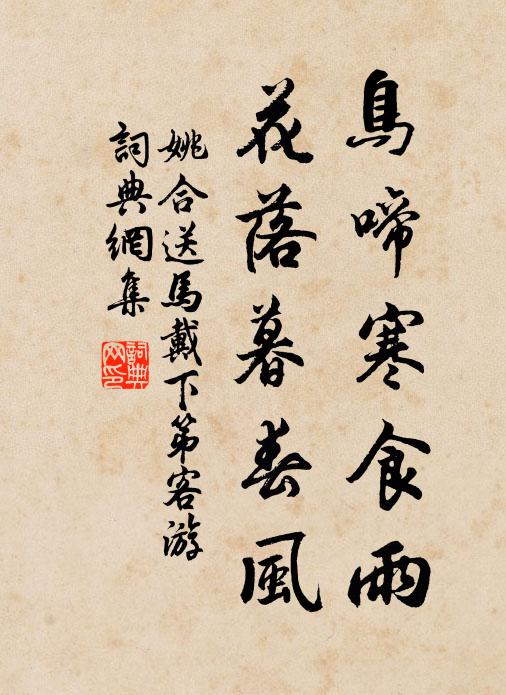 鳥啼寒食雨
花落暮春風
姚合送馬戴下第客游
詞典網集
詞典網印